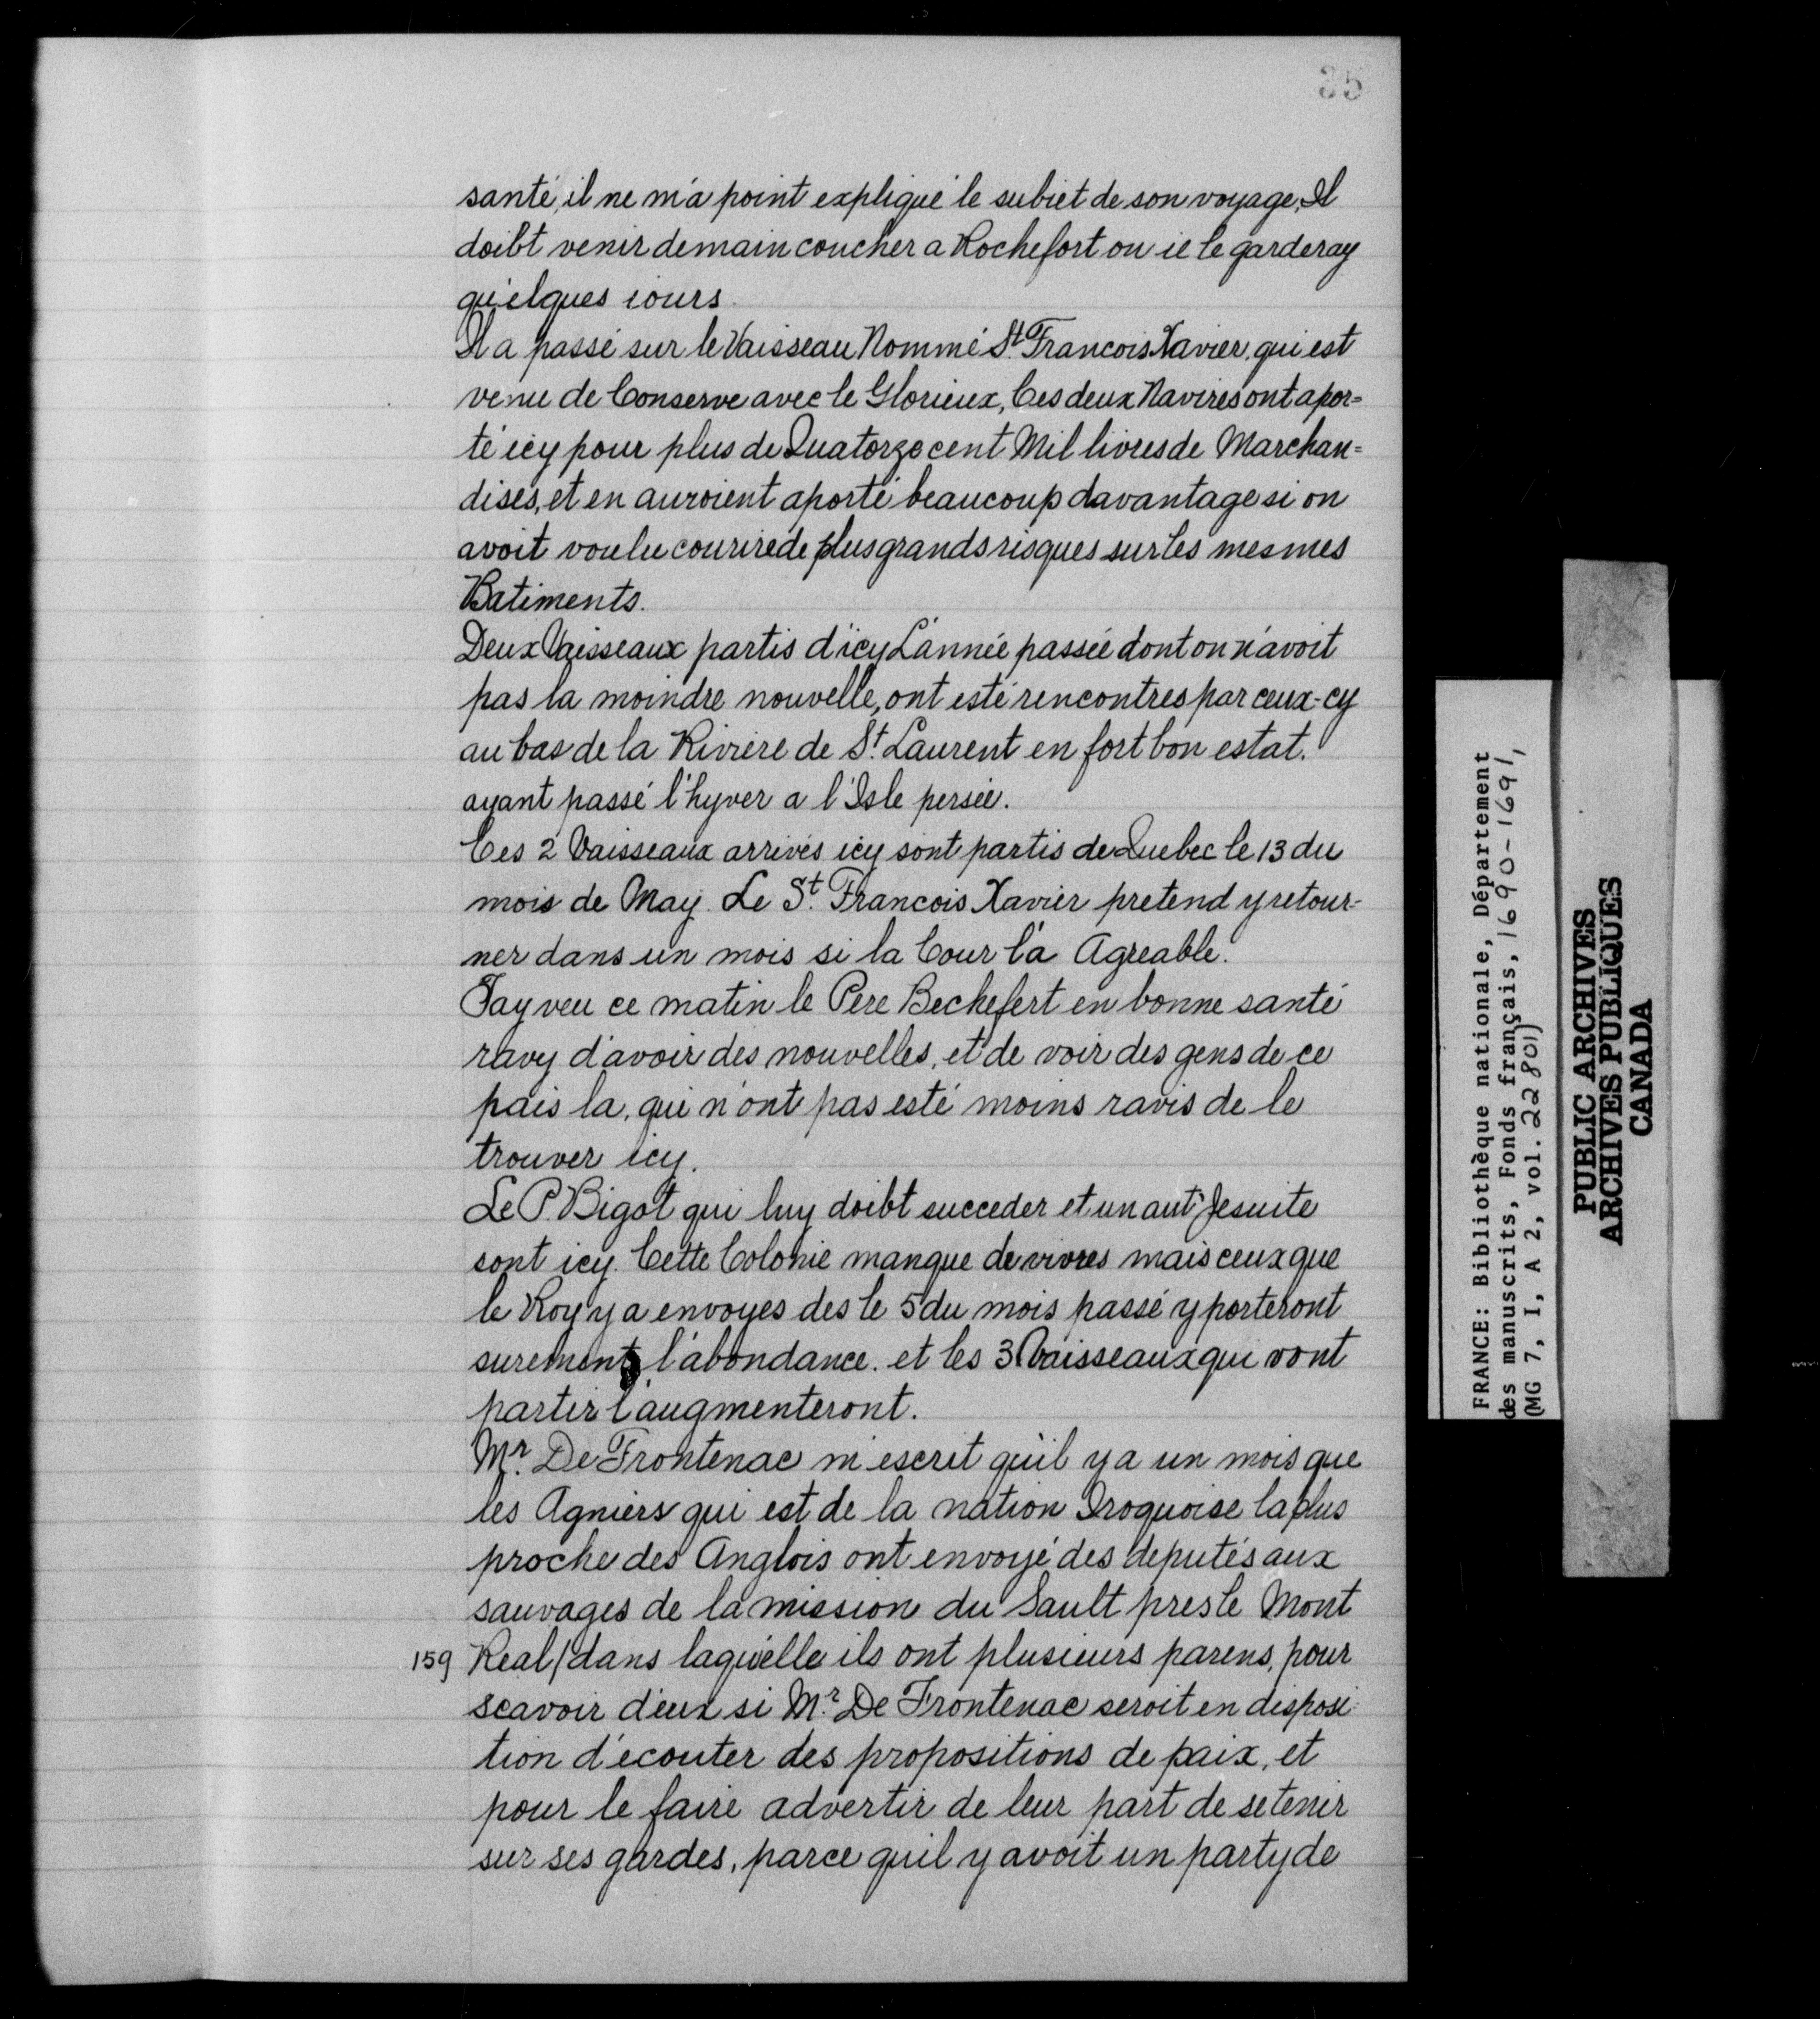 35
santé, il ne m'a point expliqué le subiet de son voyage, Il
doibt venir demain coucher a Rochefort ou ie le garderay
qu'elques iours.
Il a passé sur le Vaisseau Nommé St. Francois Xavier, qui est
venu de Conserve avec le Glorieux, Ces deux Navires ont apor=
té icy pour plus de Quatorze cent Mil livres de Marchan=
dises, et en auroient aporté beaucoup davantage si on
avoit voulu courire de plus grands risques sur les mesmes
Batiments.
Deux Vaisseaux partis d'icy L'année passée dont on n'avoit
pas la moindre nouvelle, ont esté rencontres par ceux-cy
au bas de la Riviere de St. Laurent en fort bon estat.
ayant passé l'hyver a l'Isle persée.
Ces 2 Vaisseaux arrivés icy sont partis de Quebec le 13 du
mois de May. Le St. Francois Xavier pretend y retour-
ner dans un mois si la Cour l'a Agreable.
Jay veu ce matin le Pere Bechefert en bonne santé
ravy d'avoir des nouvelles, et de voir des gens de ce
pais la, qui n'ont pas esté moins ravis de le
trouver icy.
Le P. Bigot qui luy doibt succeder et un autr Jesuite
sont icy. Cette Colonie manque de vivres mais ceux que
le Roy y a envoyes des le 5 du mois passé y porteront
surement l'abondance. et les 3 Vaisseaux qui vont
partir l'augmenteront.
Mr. De Frontenac m'escrit qu'il y a un mois que
les Agniers qui est de la nation Iroquoise la plus
proche des Anglois ont envoyé des deputés aux
sauvages de la mission du Sault pres le Mont
159 Real/dans laqu'elle ils ont plusieurs parens, pour
scavoir d'eux si Mr. De Frontenac seroit en disposi-
tion d'ecouter des propositions de paix, et
pour le faire advertir de leur part de se tenir
sur ses gardes, parce qu'il y avoit un party de
FRANCE: Bibliothèque nationale, Département
des manuscrits, Fonds français, 1690-1691,
(MG 7, I, A 2, vol. 22801)
PUBLIC ARCHIVES
ARCHIVES PUBLIQUES
CANADA